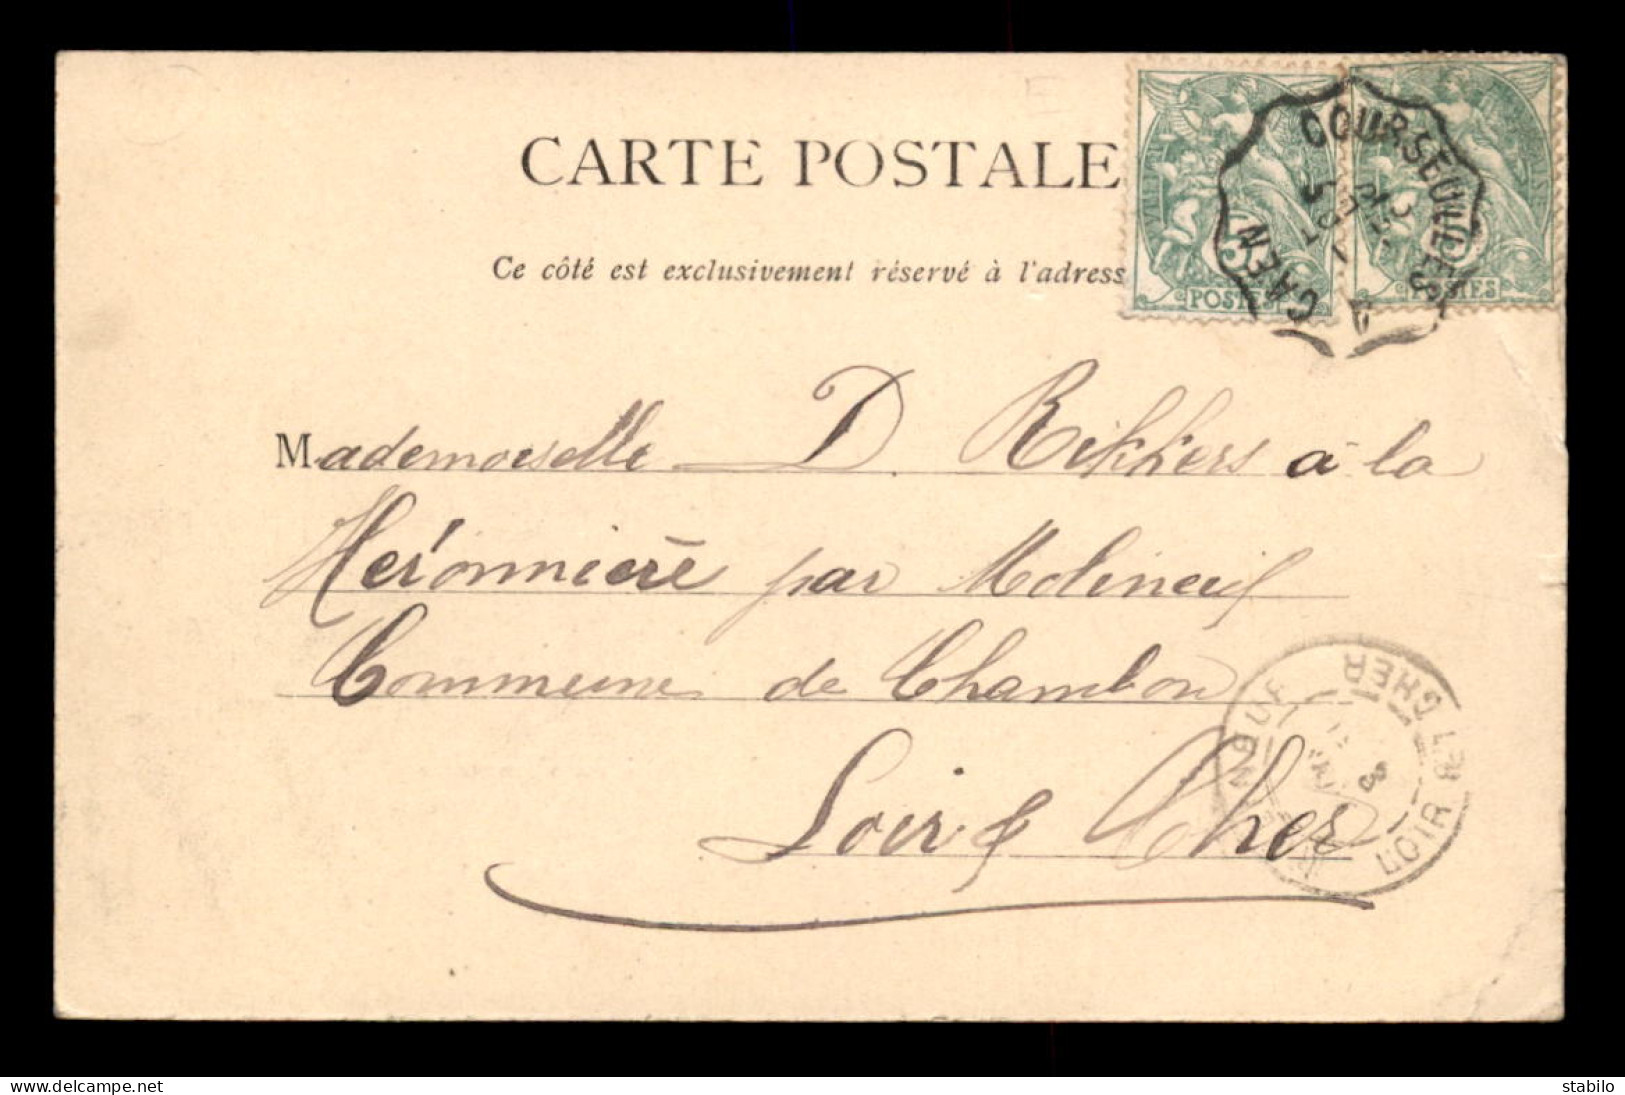 CARTE POSTALE
Ce côté est exclusivement réservé à l'adress
5
POSTES
POSTES
COURSEULLES
CAEN
Mademoiselle D. Rikkers à la
Héronnière par Molineuf
Commune de Chambon
Loir & Cher
LOIR & CHER
www.delcampe.net
stabilo